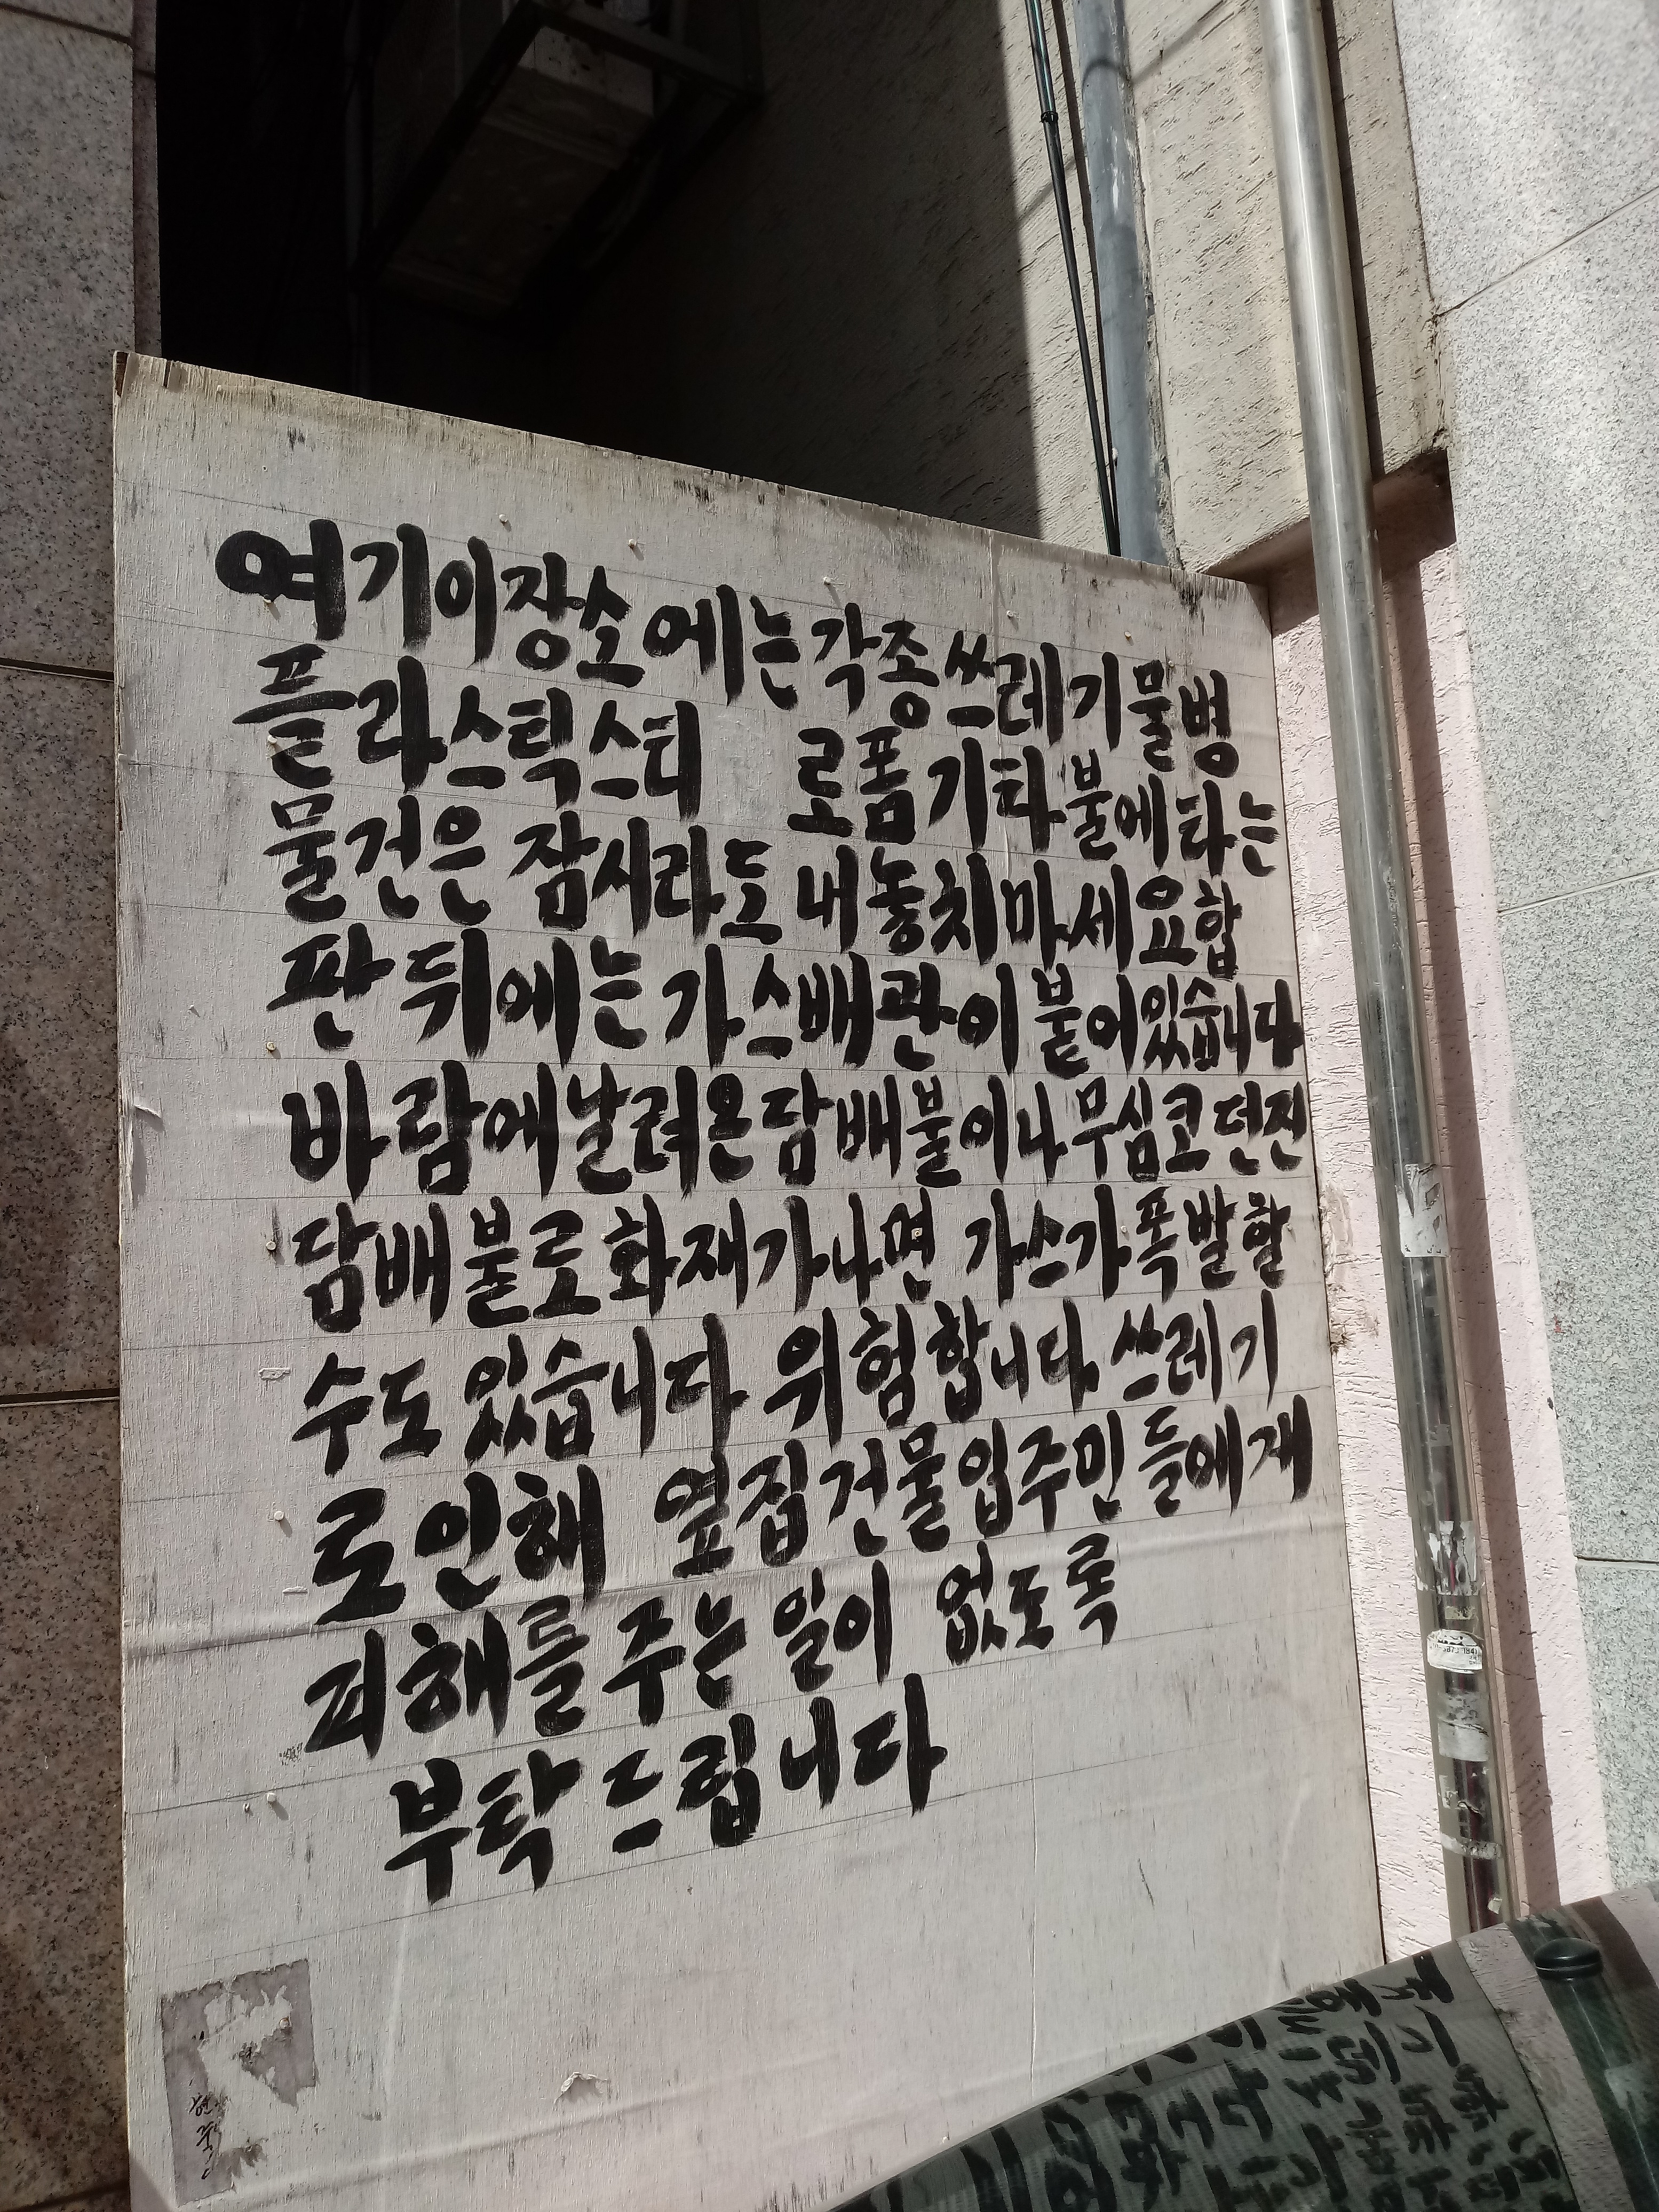 여기이장소에는각종쓰레기물병
플라스틱스티 로폼기타불에타는
물건은 잠시라도 내놓치마세요합
판 뒤에는 가스배관이 붙어있습니다
바람에날려온담배불이나무심코던진
담배불로화재가나면 가스가폭발할
수도 있습니다 위험합니다 쓰레기
로인해 옆집건물입주민들에게
피해를주는 일이 없도록
부탁드립니다